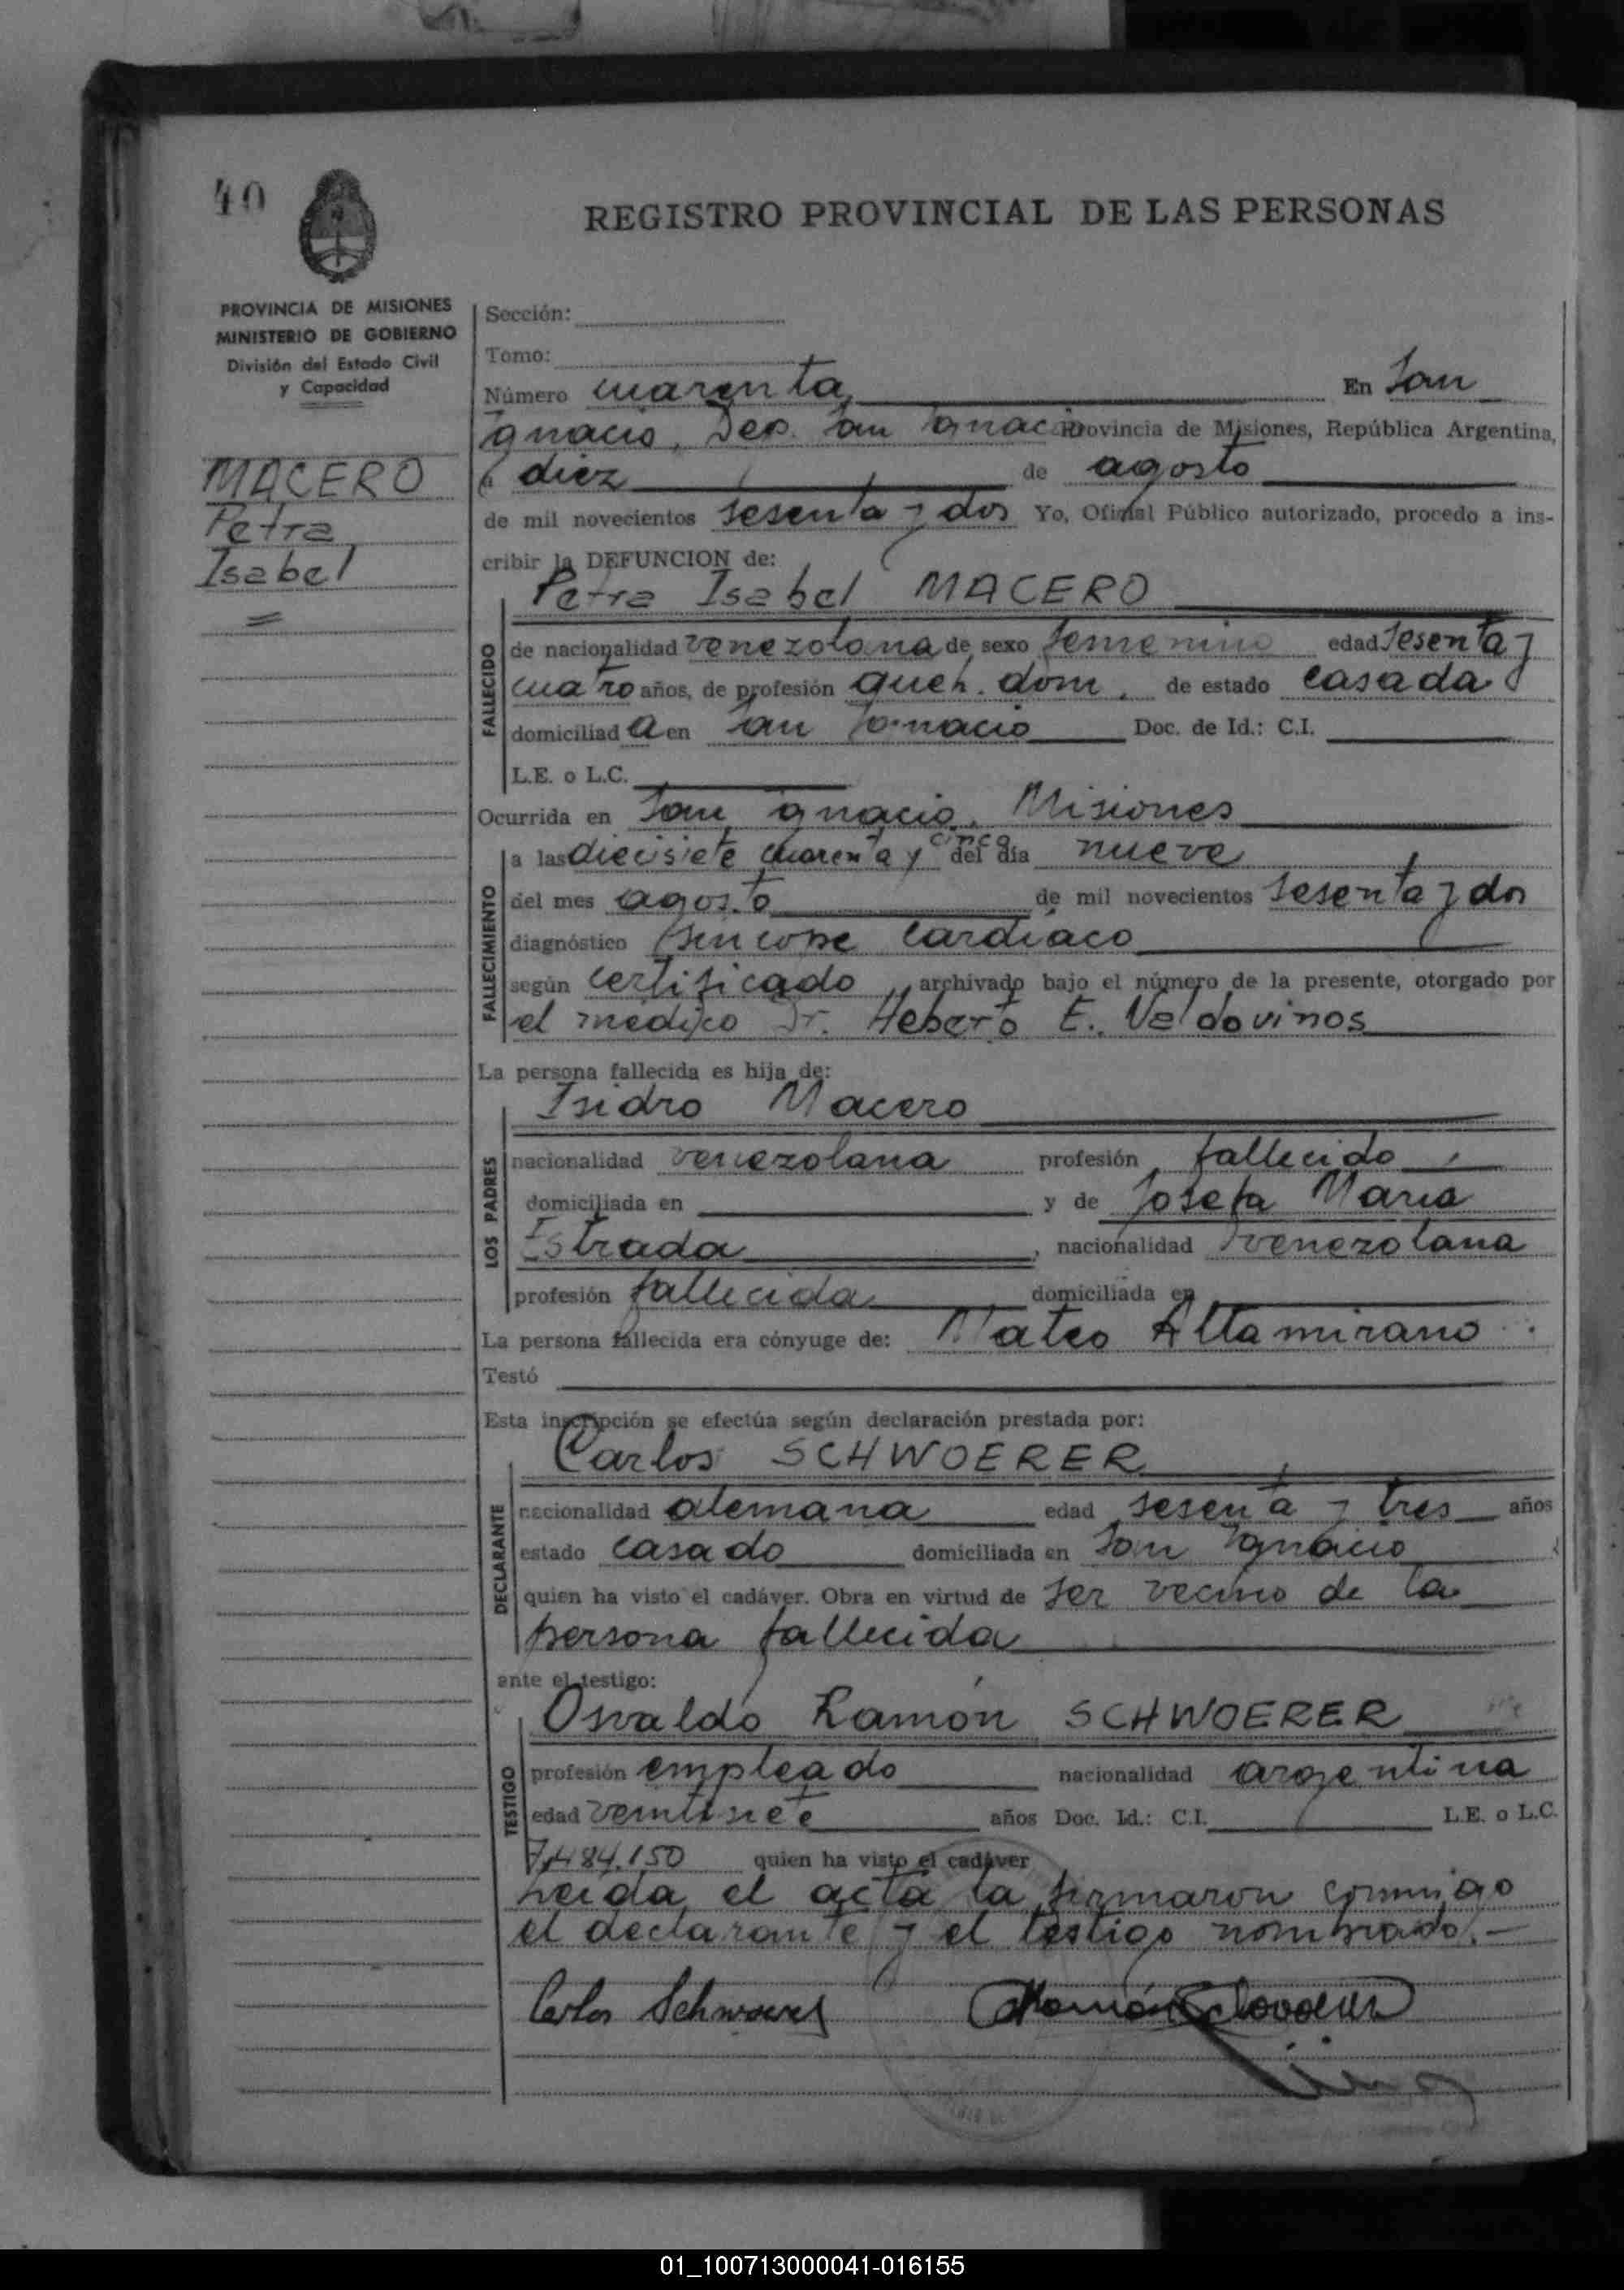 40
REGISTRO PROVINCIAL DE LAS PERSONAS
PROVINCIA DE MISIONES
MINISTERIO DE GOBIERNO
División del Estado Civil
y Capacidad
MACERO
Petra
Isabel
Sección:
Tomo:
Número cuarenta En San
Ignacio, Dep. San Ignacio Provincia de Misiones, República Argentina,
a diez de agosto
de mil novecientos sesenta y dos Yo, Oficial Público autorizado, procedo a ins-
cribir la DEFUNCION de:
Petra Isabel MACERO
FALLECIDO
de nacionalidad venezolana de sexo femenino edad sesenta y
cuatro años, de profesión queh. dom. de estado casada
domiciliad a en San Ignacio Doc. de Id.: C.I.
L.E. o L.C.
Ocurrida en San Ignacio, Misiones
FALLECIMIENTO
a las diecisiete cuarenta y cinco del día nueve
del mes agosto de mil novecientos sesenta y dos
diagnóstico síncope cardíaco
según certificado, archivado bajo el número de la presente, otorgado por
el médico Dr. Heberto E. Valdovinos
La persona fallecida es hija de:
Isidro Macero
LOS PADRES
nacionalidad venezolana profesión fallecido
domiciliada en y de Josefa María
Estrada, nacionalidad venezolana
profesión fallecida domiciliada en
La persona fallecida era cónyuge de: Mateo Altamirano
Testó
Esta inscripción se efectúa según declaración prestada por:
Carlos SCHWOERER
DECLARANTE
nacionalidad alemana edad sesenta y tres años
estado casado domiciliada en San Ignacio
quien ha visto el cadáver. Obra en virtud de ser vecino de la
persona fallecida
ante el testigo:
Osvaldo Ramón SCHWOERER
TESTIGO
profesión empleado nacionalidad argentina
edad veintisiete años Doc. Id.: C.I. L.E. o L.C.
7.484.150 quien ha visto el cadáver
Leída el acta la firmaron conmigo
el declarante y el testigo nombrado.-
Carlos Schwoerer
01_100713000041-016155